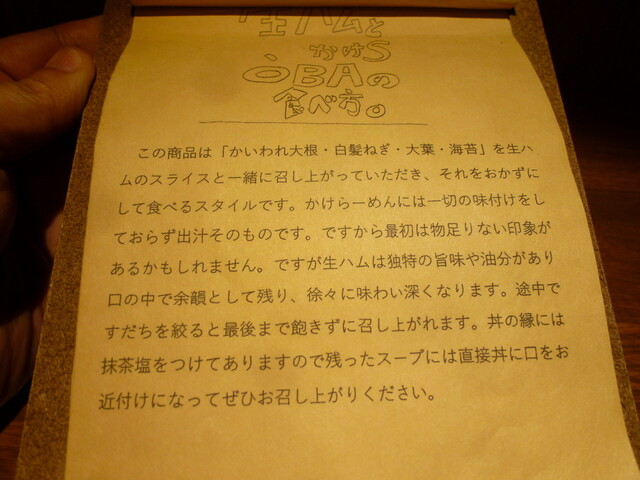 生ハムと
かけS
OBAの
食べ方。
この商品は「かいわれ大根・白髪ねぎ・大葉・海苔」を生ハ
ムのスライスと一緒に召し上がっていただき、それをおかずに
して食べるスタイルです。かけらーめんには一切の味付けをし
ておらず出汁そのものです。ですから最初は物足りない印象が
あるかもしれません。ですが生ハムは独特の旨味や油分があり
口の中で余韻として残り、徐々に味わい深くなります。途中で
すだちを絞ると最後まで飽きずに召し上がれます。丼の縁には
抹茶塩をつけてありますので残ったスープには直接丼に口をお
近付けになってぜひお召し上がりください。